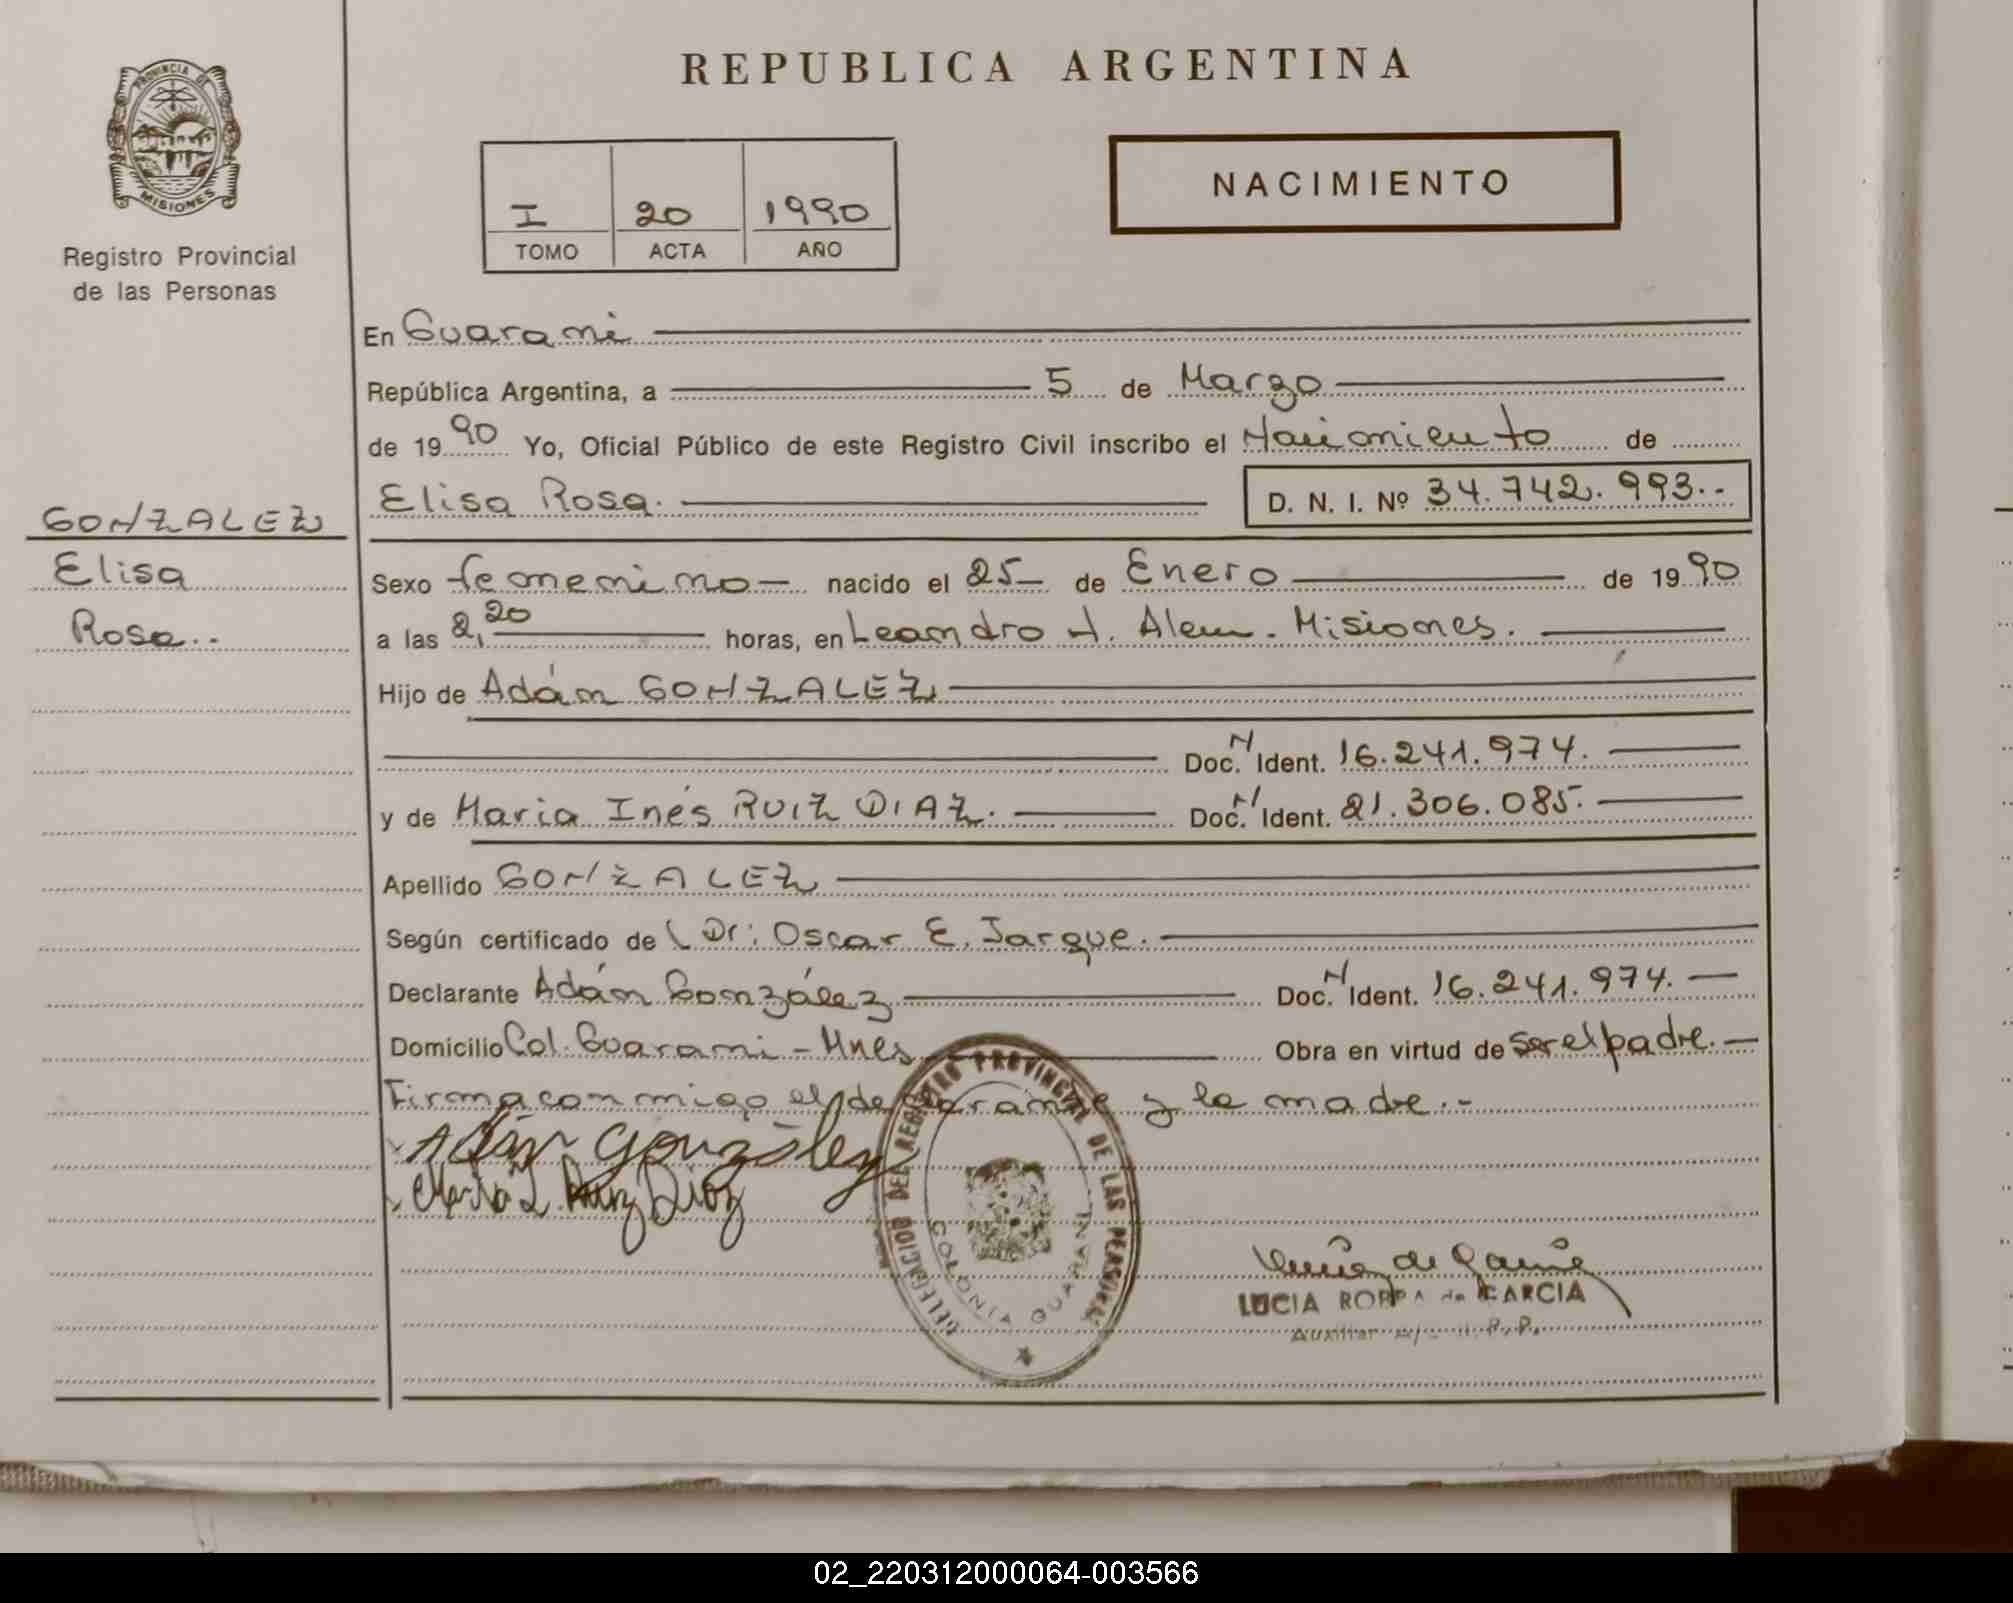 PROVINCIA DE
MISIONES
Registro Provincial
de las Personas
GONZALEZ
Elisa
Rosa..
REPUBLICA ARGENTINA
I 20 1990
TOMO ACTA AÑO
NACIMIENTO
En Guarani
República Argentina, a 5 de Marzo
de 1990 Yo, Oficial Público de este Registro Civil inscribo el Nacimiento de
Elisa Rosa. D. N. I. Nº 34.742.993.-
Sexo femenino nacido el 25 de Enero de 1990
a las 2,20 horas, en Leandro N. Alem. Misiones.
Hijo de Adán GONZALEZ
Doc. N Ident. 16.241.974.
y de Maria Inés RUIZ DIAZ. Doc. N Ident. 21.306.085.
Apellido GONZALEZ
Según certificado de Dr: Oscar E. Jarque.
Declarante Adán González Doc. N Ident. 16.241.974.
Domicilio Col. Guarani - Mnes Obra en virtud de ser el padre.
Firma conmigo el declarante y la madre.-
Adán González
Maria I. Ruiz Diaz
DELEGACION DEL REGISTRO PROVINCIAL DE LAS PERSONAS
COLONIA GUARANI
LUCIA de GARCIA
Auxiliar
02_220312000064-003566